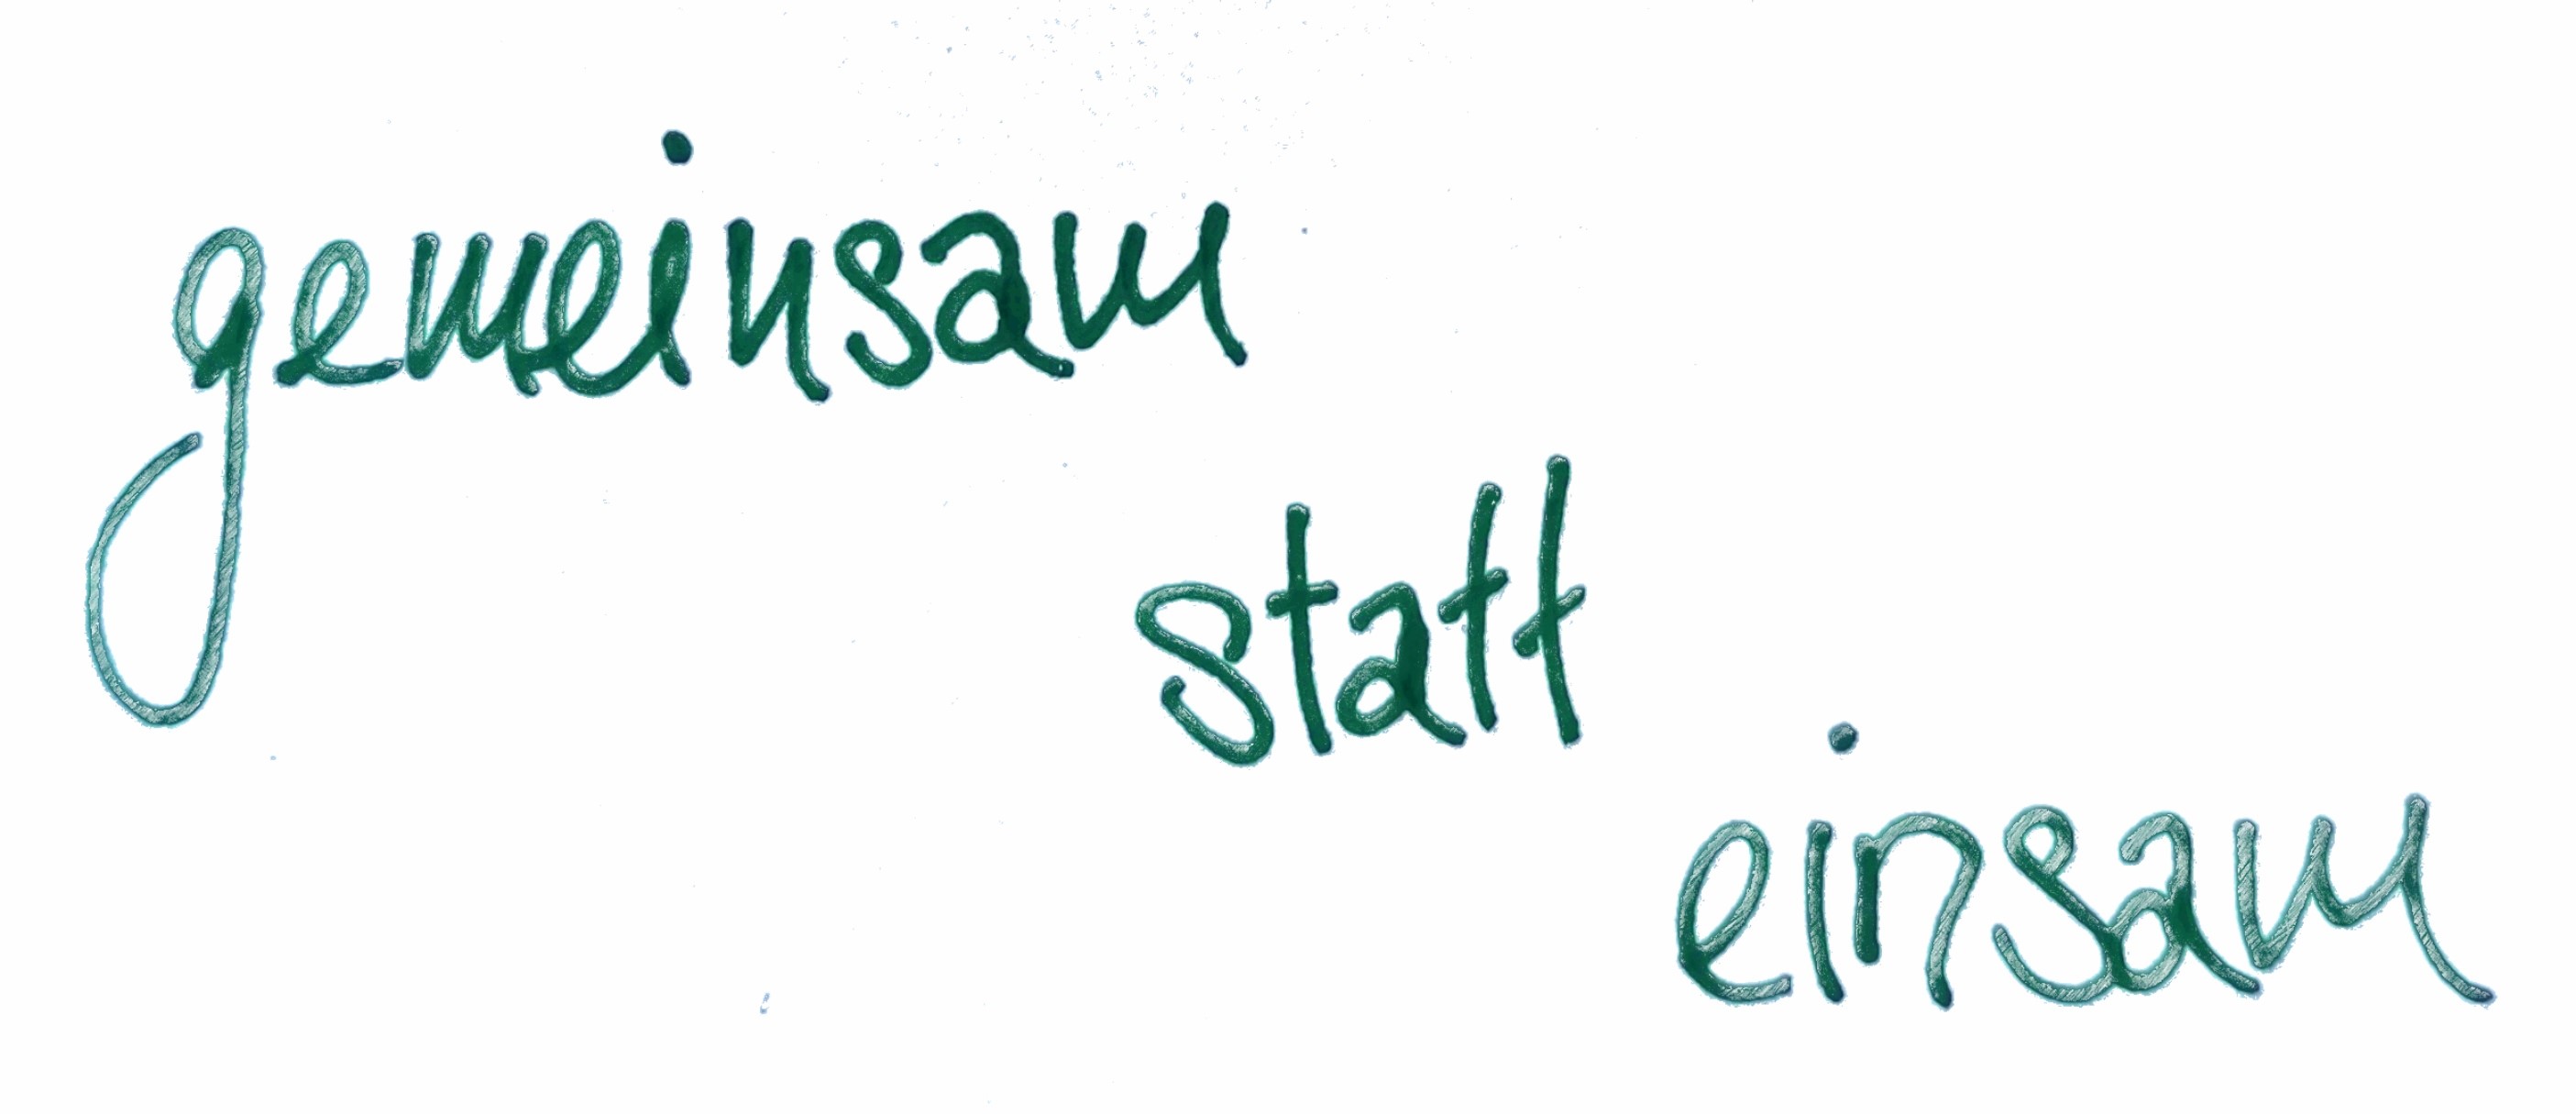 gemeinsam
statt
einsam